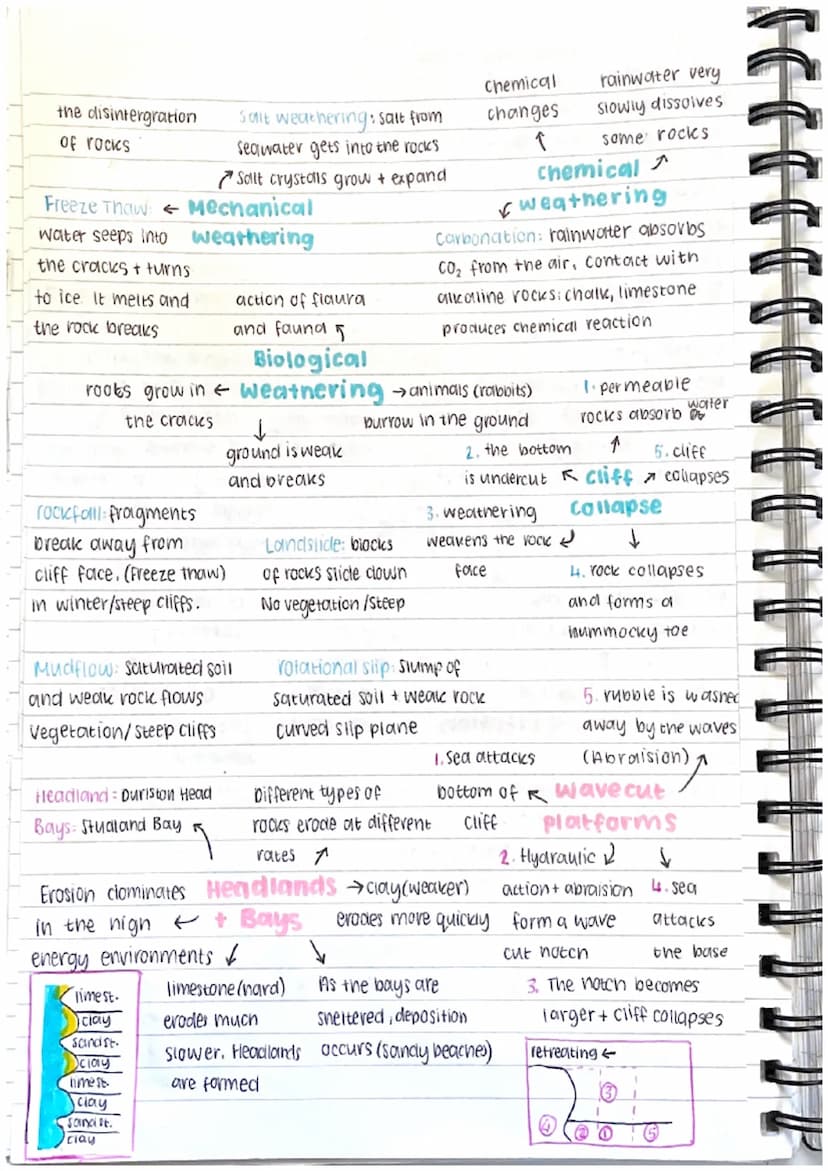 the disintergration
of rocks
Salt weathering: salt from
seawater gets into the rocks
Salt crystals grow + expand
Mechanical
weathering
Freeze Thaw:
water seeps into
the cracks + turns
to ice It melts and
the rock breaks
chemical
changes
rainwater very
slowly dissolves
some rocks
Chemical
weathering
Carbonation: rainwater absorbs
CO₂ from the air, contact with
alkaline rocks: chalk, limestone
produces chemical reaction
action of flaura
and fauna
Biological
weathering
roots grow in
the cracks
animals (rabbits)
burrow in the ground
ground is weak
and breaks
1. permeable
rocks absorb water
2. the bottom
is undercut
5. cliff
collapses
Cliff
Collapse
3. weathering
weakens the rock
face
4. rock collapses
and forms a
hummocky toe
rockfall: fragments
break away from
cliff face. (Freeze thaw)
in winter/steep cliffs.
Landslide: blocks
of rocks slide down
No vegetation/steep
Mudflow: saturated soil
and weak rock flows
vegetation/steep cliffs
rotational slip: slump of
saturated soil + weak rock
curved slip plane
5. rubble is washed
away by the waves
(Abraision)
1. Sea attacks
bottom of
cliff
wavecut
platforms
2. Hydraulic
action + abraision
form a wave
cut notch
4. sea
attacks
the base
3. The notch becomes
larger + cliff collapses
Headland: Durlston Head
Bays: Studland Bay
Different types of
rocks erode at different
rates
Headlands
+ Bays
Erosion dominates
in the high
energy environments
clay (weaker)
erodes more quickly
limestone (hard)
erodes much
slower. Headlands
are formed
As the bays are
sheltered, deposition
occurs (sandy beaches)
limest.
clay
sandst.
clay
limest.
clay
sandst.
clay
retreating ←
3
4
2
1
5